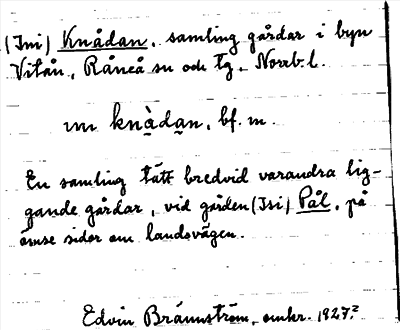 (Ini) Knådan, samling gårdar i byn
Vitån, Råneå sn och tg, Norrb. l.
un knàdan, bf. m.
En samling tätt bredvid varandra lig-
gande gårdar, vid gården (Isi) Pål, på
ömse sidor om landsvägen.
Edvin Brännström, omkr. 1927.?